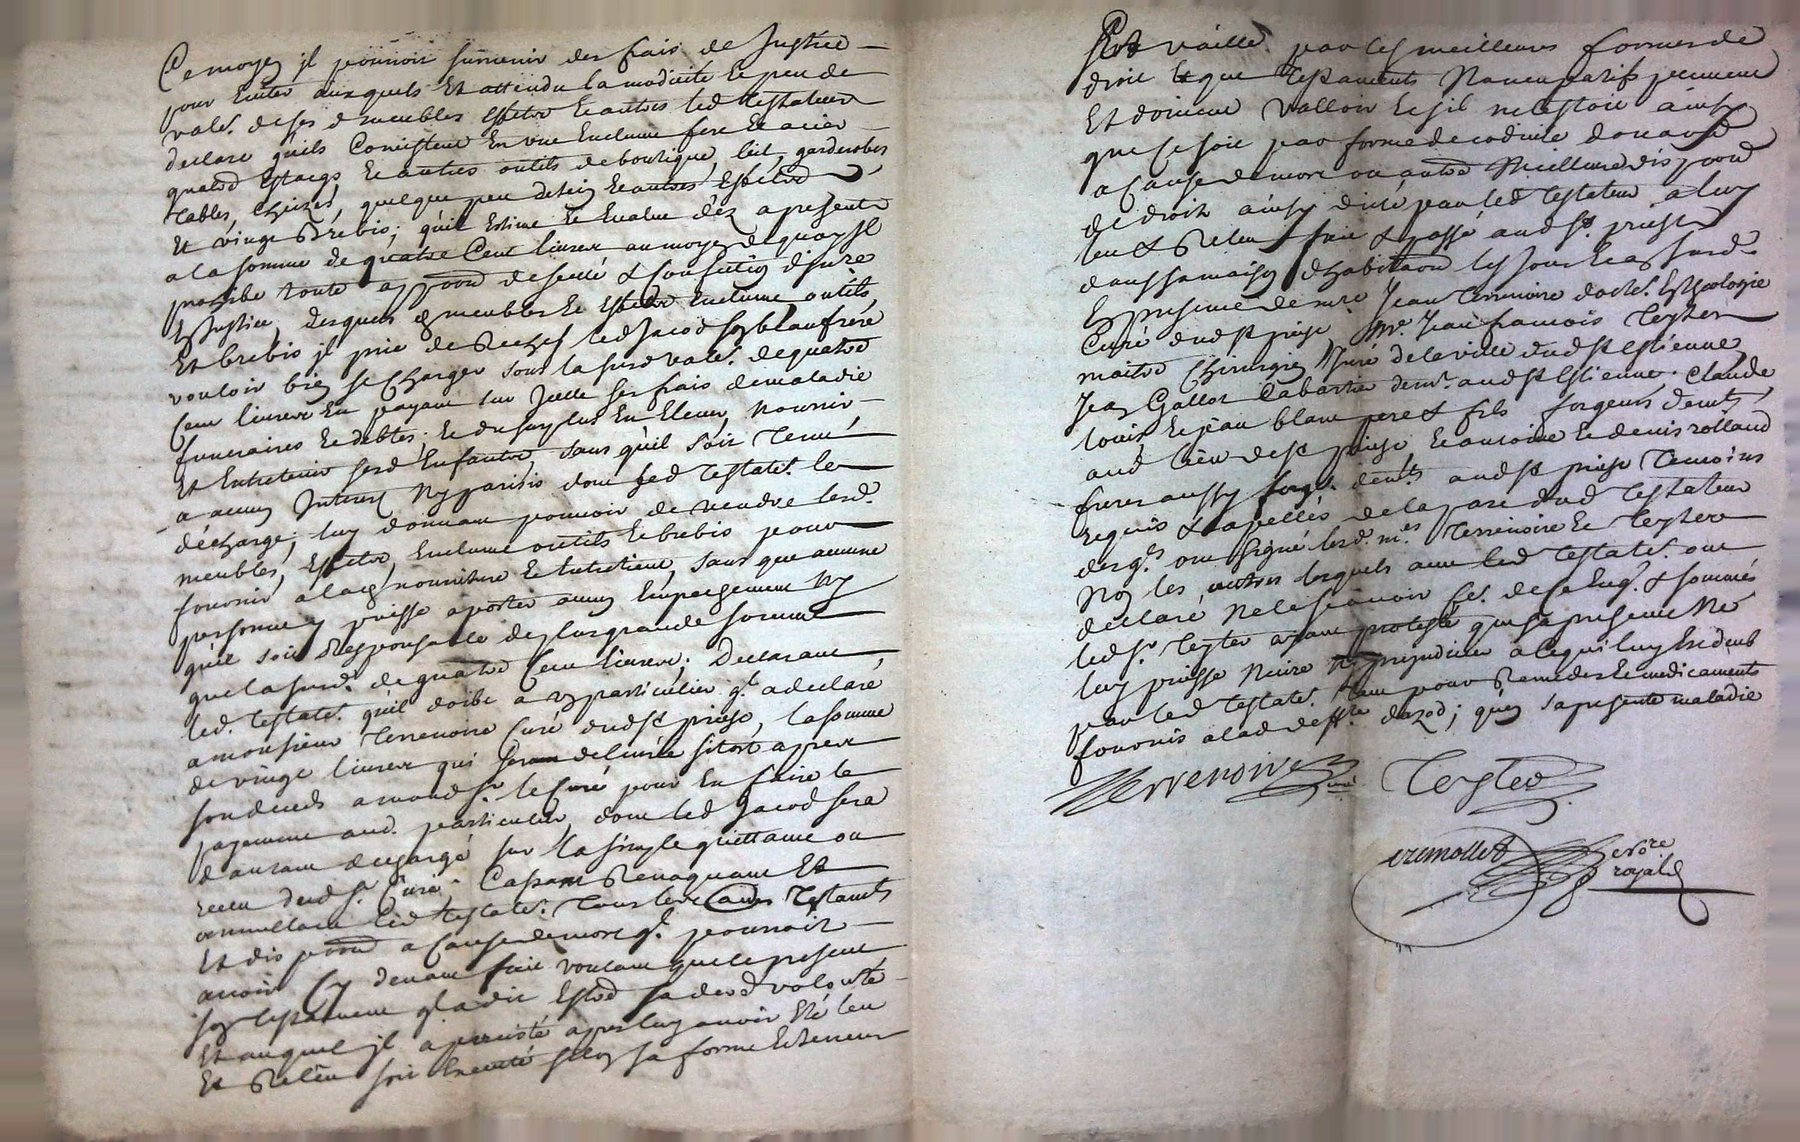 Ce moyen il pourroit survenir des frais de Justice
pour Eviter auxquels Et attendu la modicité Le peu de
vale.r de ses d. meubles Effetz Et autres led testateur
declare qu'ils Consistent En une Enclume fere Et acier
quatre Estaegs Et autres outils de boutique, lict, garderobes
tables, Chezes, quelque peu de foin Et autres Effetz
Et vingt Brebis; qu'il Estime Et Evalue d'ez a present
a la somme de quatre Cent livres au moyen de quoy Il
prohibe toute appoon de scellé & Confection d'Inre
En Justice, desquels d. meubles Et Effetz Enclume, outils,
Et brebis il prie de Rechef led Jacod son beaufrere
vouloir bien se Charger sous la susd vale.r de quatre
Cent livres En payant sur Icelle ses frais de maladie
funeraires Et debtes; Et du surplus En Elever, Nourrir
Et Entretenir sesd Enfantz sans qu'il soit Tenu
a aucun Interest Ny parisis dont led Testate.r le
décharge; luy donnant pouvoir de vendre lesd.
meubles, Effetz, Enclume outils Et brebis pour
fournir a lad nourriture Et Entretient, sans que aucune
personne y puisse aporter aucun Empeschement Ny
qu'il soit Responsable de plus grande somme
que la susd. de quatre Cent livres; Declarant
led. Testate.r qu'il doibt a un particulier q.l a declaré
a monsieur Terrenoire Curé dud St priest, la somme
de vingt livres qui seront delivrés sitost apres
son deceds a mond Sr. le Curé pour En faire le
payement aud. particulier, dont led Jacod sera
d'autant dechargé sur la simple quittance ou
receu dud Sr. Curé. Cassant Revoquant Et
annullant led testate.r Tous les autres Testamts
Et dis poond a Cause de mort q.l pourroit
avoir Cy devant fait voulant que le present
son testament q.l a dit Estre sa dere volonté
Et auquel il a persisté apres luy avoir Eté leu
Et Releu soit Executé selon sa forme Et teneur
Et vaille par les meilleures formes de
droit Et que Testaments Nuncupatifs peuvent
Et doivent valloir Et s'il ne Estoit ainsy
que Ce soit par forme de codicile donaon
a Cause de mort ou autre Meilleure dis poond
de droit ainsy dicté par led Testateur a luy
leu & Releu fait & passé aud St. priest
dans sa maison d'habitaon les jour Et an susd.
En presence de mre Jean Terrenoire docte.r En theologie
Curé dud St priest, Mr. Jean francois Teyter
maitre Chirurgien Juré de la ville dud St Estienne
Jean Gallot Cabartier demt. aud St Estienne. Claude
louis Et jean blanc pere & fils forgeurs demts
aud lieu de St priest Et antoine Et denis rolland
freres aussy forg.rs demts aud St priest Temoins
requis & apellés de la part dud Testateur
desq.ls ont signé lesd. mres Terrenoire Et Teyter
Non les autres lesquels avec led Testate.r ont
declaré Ne le scavoir fe. de ce Enq. & sommés
led Sr. Teyter ayant protesté que sa presence Ne
luy puisse Nuire Ny prejudicier a ce qui luy Est deub
par led Testate.r tant pour Remedes Et medicaments
fournis a lad deffte dazod; qu'en sa presente maladie
Terrenoire curé Teyter
crimollet nore
royal